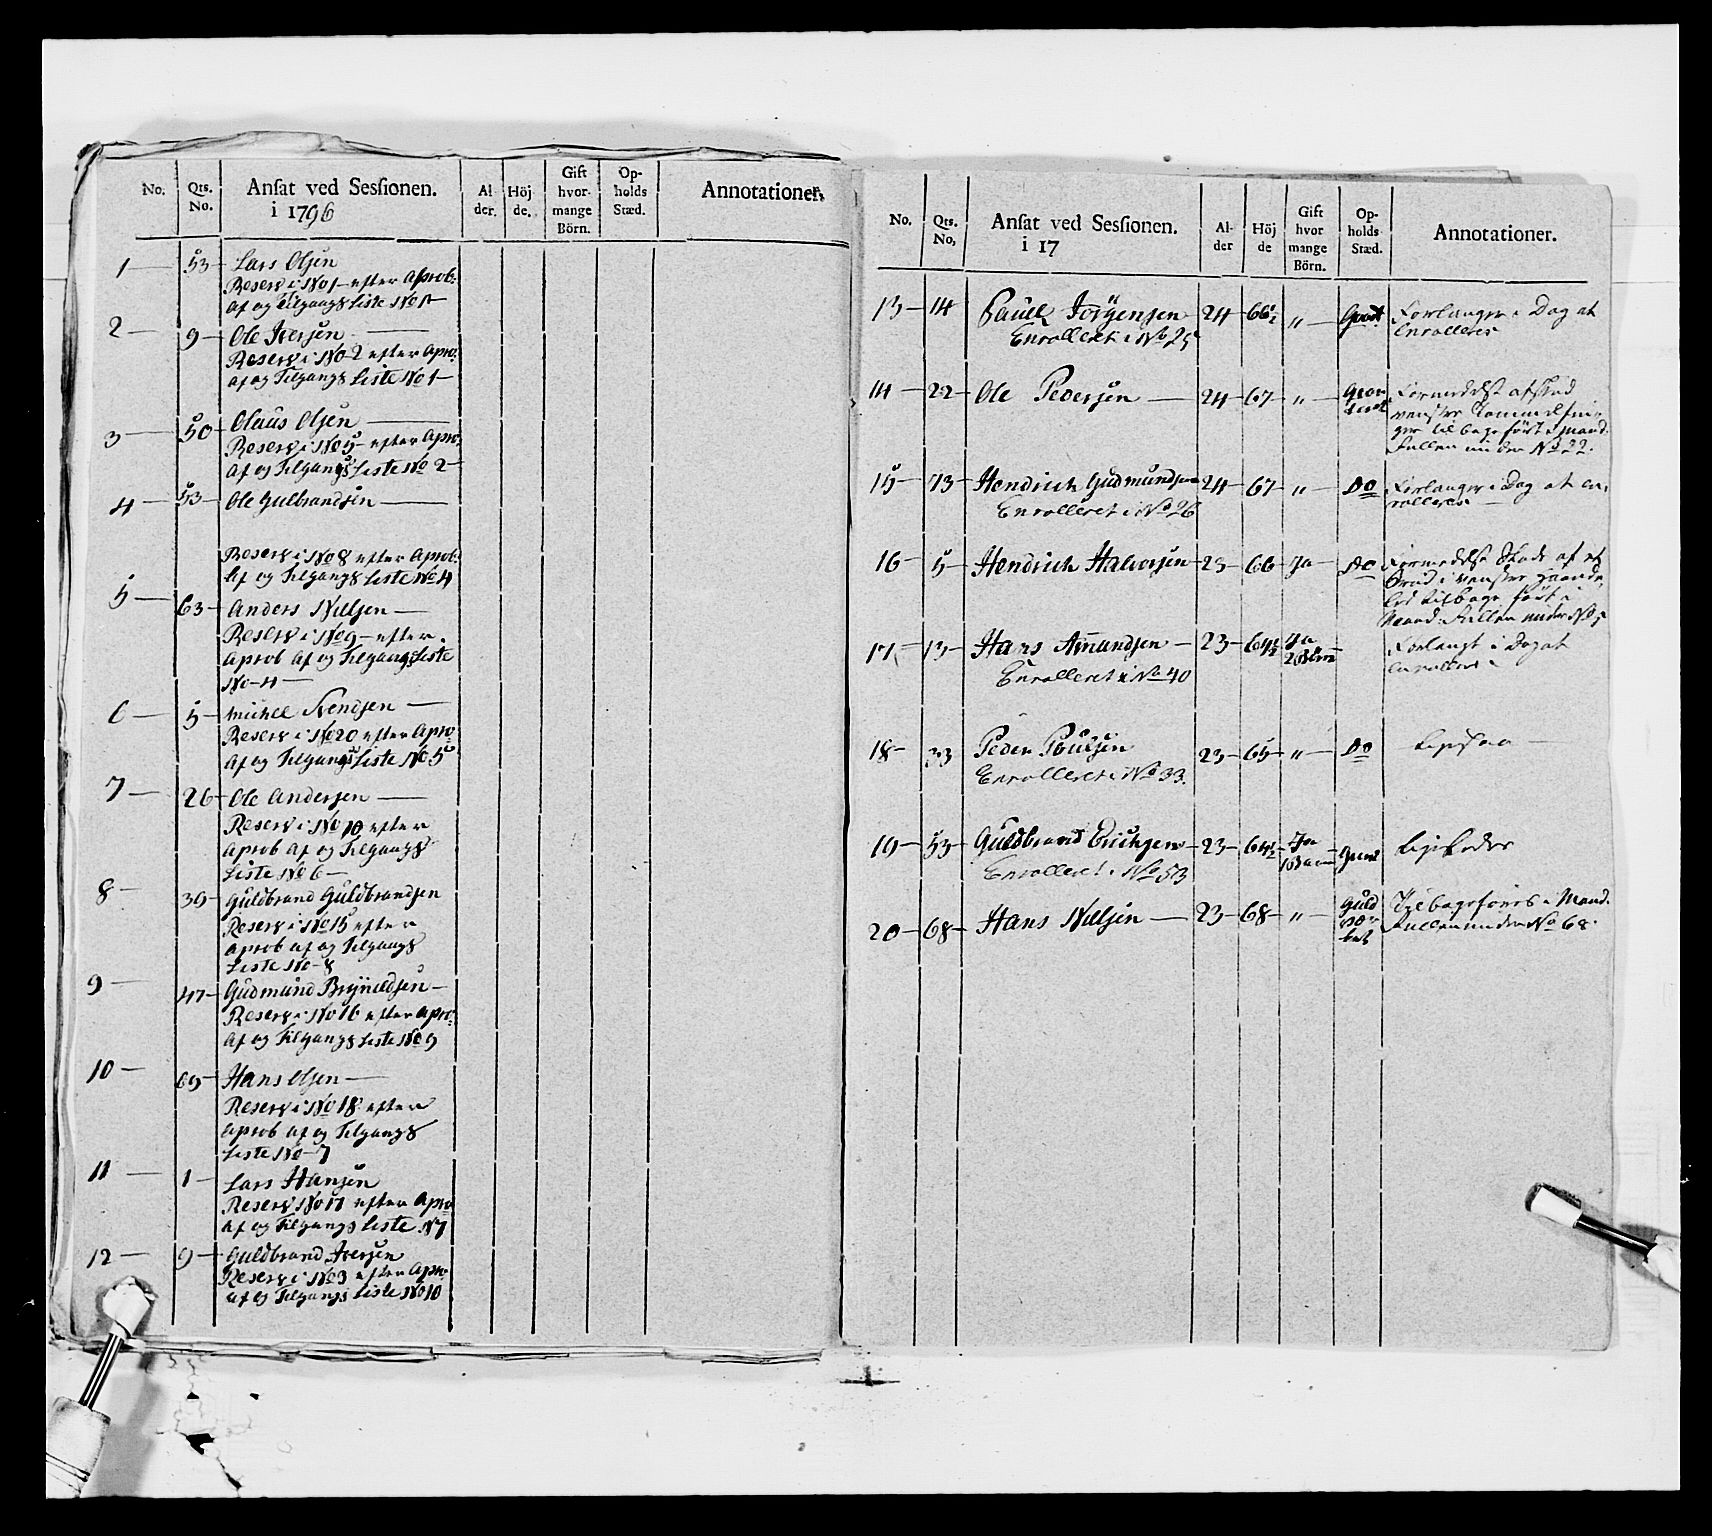 No. Qts. No. Ansat ved Sessionen. i 1796 Al- der. Höj de. Gift hvor- mange Börn. Op- holds Stæd. Annotationer.
1 — 53 — Lars Olsen
Reserv i No 1 — efter Aprob:
Af og Tilgangs Liste No 1 —
2 — 9 — Ole Iversen —
Reserv i No 2 efter Apro:
af og Tilgangs Liste No 1 —
3 — 50 Olaus Olsen —
Reserv i No 5 — efter Apro:
Af og Tilgangs Liste No 2 —
4 — 53 — Ole Gulbrandsen —
Reserv i No 8 efter Aprob:
Af og Tilgangs Liste No 4
5 — 63 — Anders Nielsen —
Reserv i No 9 — efter
Aprob Af og Tilgangs Liste
No 4 —
6 — 5 — Michel Svendsen —
Reserv i No 20 efter Apro
Af og Tilgangs Liste No 5
7 — 26 — Ole Andersen —
Reserv i No 10 efter
Aprob Af og Tilgangs
Liste No 6 —
8 — 39 — Guldbrand Guldbrandsen
Reserv i No 15 efter
Aprob af og Tilgangs
Liste No 8
9 — 47 — Gudmund Brynildsen —
Reserv i No 16 efter Apro:
Af og Tilgangs Liste No 9
10 — 69 — Hans Olsen —
Reserv i No 18 efter
Aprob af og Tilgangs
Liste No 7
11 — 1 — Lars Hansen
Reserv No 17 efter Apro
Af og Tilgangs Liste N 7
12 — 9 — Guldbrand Iversen
Reserv i No 3 efter Apro
af og Tilgangs Liste No 10
No. Qts. No, Ansat ved Sessionen. i 17 Al- der Höj de Gift hvor mange Börn. Op- holds Stæd. Annotationer.
13 — 14 Pauel Jorgensen 24 — 66½ „ — Forlanger i Dag at
Enrolleret i No 25 Enrolleres
14 — 22 — Ole Pedersen — 24 — 67 — „ — Formedelst afskud
venster Tommelfin-
ger tilbage ført i Mand:
Rullen under No 22.
15 — 73 — Hendrich Gudmundsen 24 — 67 — „ — Do Forlanger i Dag at en-
Enrolleret i No 26 rolleres —
16 — 5 — Hendrich Halvorsen 23 — 66 — Ja — Do Formedelst Skade af et
Brud i venster Haande
led tilbage ført i
Mand: Rullen under No 5
17 — 13 — Hans Amundsen — 23 — 64½ Ja 2 Börn Forlangt i Dag at
Enrolleret i No 40 enrolleres
18 — 33 Peder Poulsen 23 — 65 — „ — Do Ligesaa —
Enrolleret i No 33.
19 — 53 — Guldbrand Erichsen — 23 — 64½ — Ja 1 Barn
Enrolleret i No 53
20 — 68 — Hans Nielsen — 23 — 68 — „ — Tilbageføres i Mand:
Rullen under No 68.